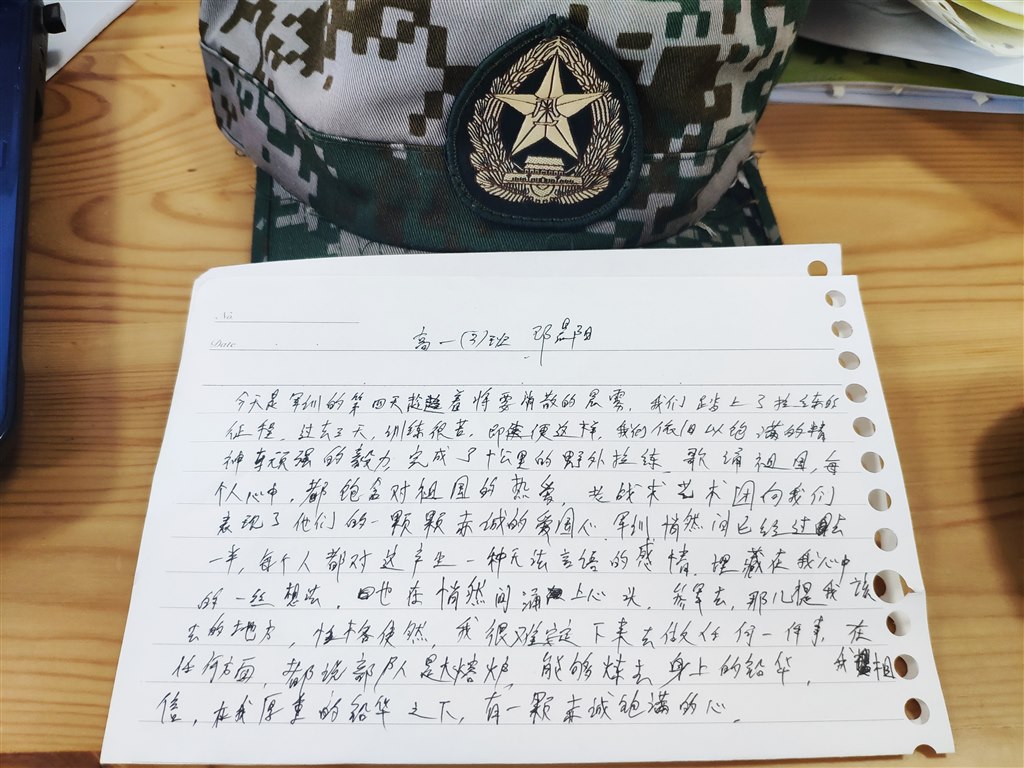 No.
Date
高一(3)班 邓晨阳
今天是军训的第四天趁着将要消散的晨雾,我们踏上了拉练的
征程,过去3天,训练很苦,即便这样,我们依旧以饱满的精
神与顽强的毅力,完成了十公里的野外拉练,歌诵祖国,每
个人心中,都饱含对祖国的热爱,老战术艺术团向我们
表现了他们的一颗颗赤诚的爱国心,军训悄然间已经过去
一半,每个人都对这产生一种无法言语的感情,埋藏在我心中
的一丝想法,也在悄然间涌上心头,参军去,那儿是我该
去的地方,性格使然,我很难定下来去做任何一件事,在
任何方面,都说部队是大熔炉,能够炼去身上的铅华,我相
信,在我厚重的铅华之下,有一颗赤诚饱满的心。